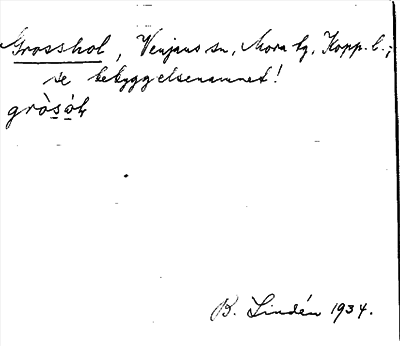 Grosshol, Venjans sn, Mora tg, Kopp. l.;
se bebyggelsenamnet!
gròsó̱ḷ
B. Lindén 1934.